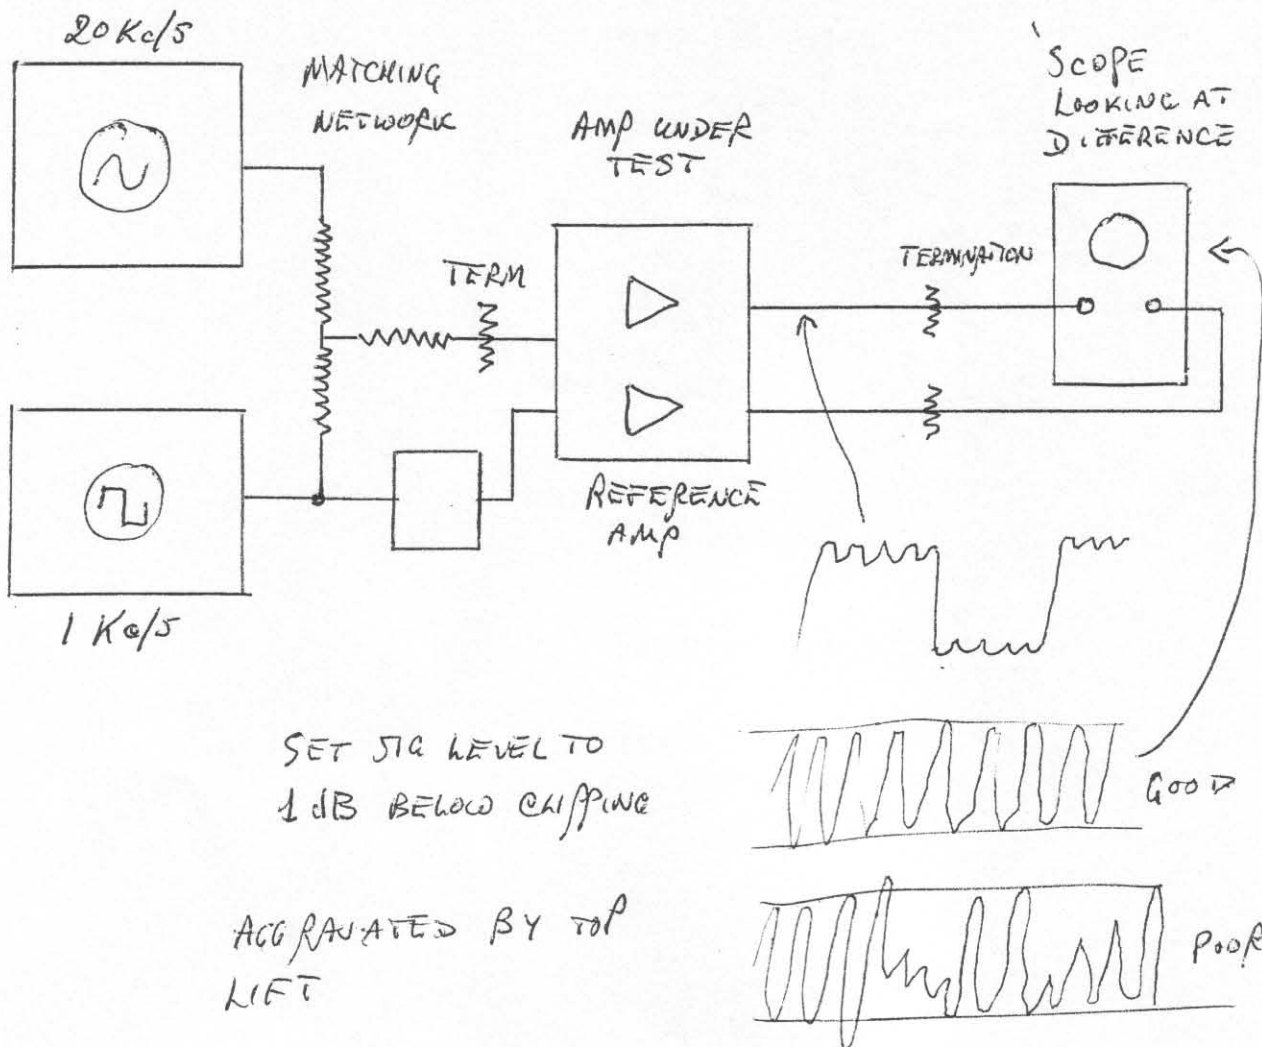 20 Kc/s
MATCHING
NETWORK
AMP UNDER
TEST
SCOPE
LOOKING AT
DIFFERENCE
TERM
TERMINATION
REFERENCE
AMP
1 Kc/s
SET SIG LEVEL TO
1 dB BELOW CLIPPING
GOOD
AGGRAVATED BY TOP
LIFT
POOR